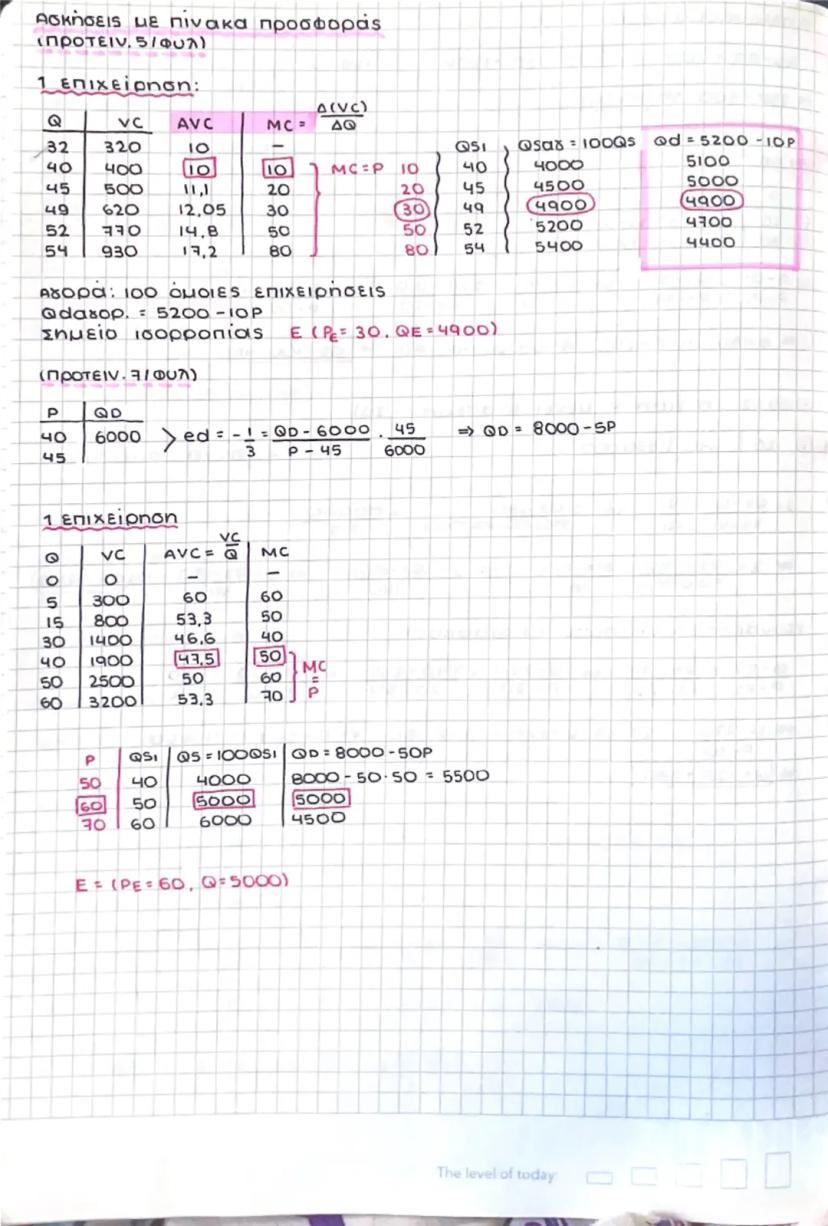 Ασκήσεις με πίνακα προσφοράς
(ΠΡΟΤΕΙΝ. 5/ΦΥΛ)
1 επιχείρηση:
Q VC AVC MC = Δ(VC)/ΔQ
QS1 Qsαγ = 100Qs Qd = 5200 - 10P
32 320 10 -
40 400 10 10 MC = P 10 40 4000 5100
45 500 11,1 20 20 45 4500 5000
49 620 12,05 30 30 49 4900 4900
52 770 14,8 50 50 52 5200 4700
54 930 17,2 80 80 54 5400 4400
Αγορά: 100 όμοιες επιχειρήσεις
Qdαγορ. = 5200 - 10P
Σημείο ισορροπίας E (PE = 30, QE = 4900)
(ΠΡΟΤΕΙΝ. 7/ΦΥΛ)
P QD
40 6000 > ed = - 1/3 = QD - 6000 / P - 45 · 45/6000 ⇒ QD = 8000 - 5P
45
1 επιχείρηση
Q VC AVC = VC/Q MC
0 0 - -
5 300 60 60
15 800 53,3 50
30 1400 46,6 40
40 1900 47,5 50 MC = P
50 2500 50 60
60 3200 53,3 70
P QS1 QS = 100QS1 QD = 8000 - 50P
50 40 4000 8000 - 50·50 = 5500
60 50 5000 5000
70 60 6000 4500
E = (PE = 60, Q = 5000)
The level of today